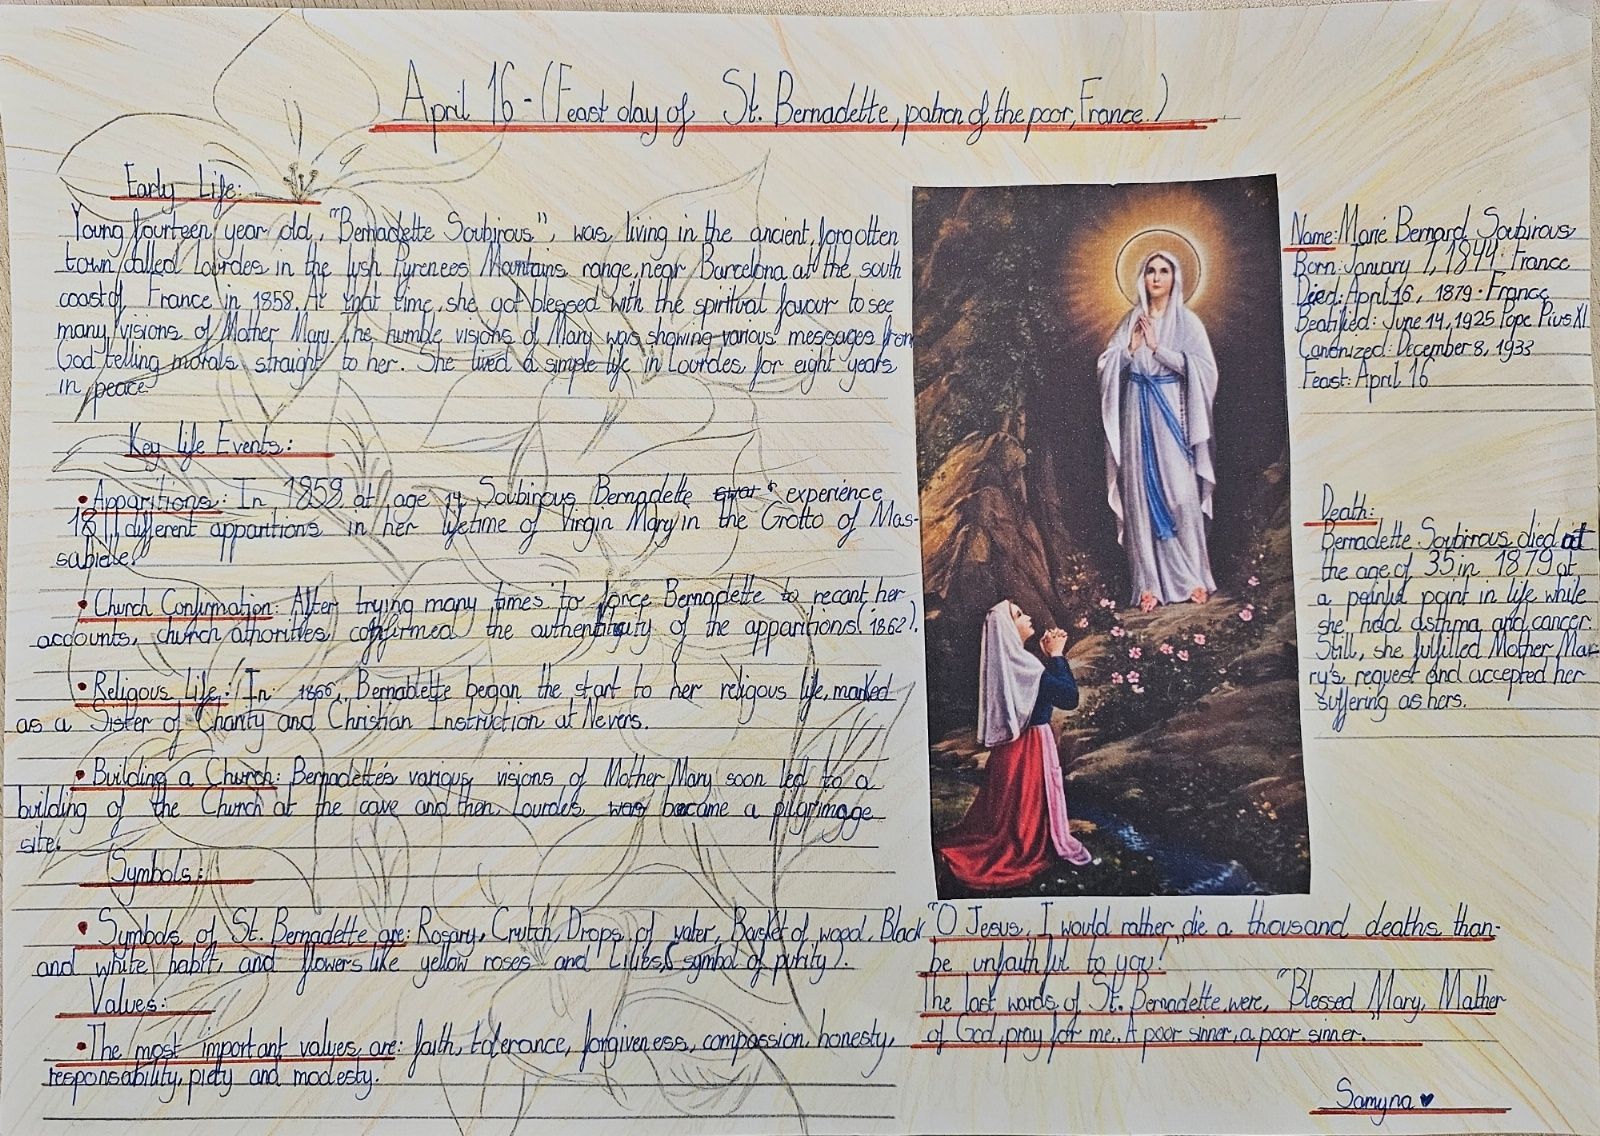 April 16 - (Feast day of St. Bernadette, patron of the poor, France.)
Early Life:
Young fourteen year old, "Bernadette Soubirous", was living in the ancient, forgotten
town called Lourdes in the lush Pyrenees Mountains range, near Barcelona at the south
coast of France in 1858. At that time, she got blessed with the spiritual favour to see
many visions of Mother Mary. The humble visions of Mary was showing various messages from
God telling morals straight to her. She lived a simple life in Lourdes, for eight years
in peace.
Key life Events:
• Apparitions: In 1858 at age 14 Soubirous Bernadette experience
18 different apparitions in her lifetime of Virgin Mary in the Grotto of Mas-
sabielle.
• Church Confirmation: After trying many times to force Bernadette to recant her
accounts, church athorities confirmed the authenticity of the apparitions (1862).
• Religous Life: In 1866, Bernadette began the start to her religous life, marked
as a Sister of Charity and Christian Instruction at Nevers.
• Building a Church: Bernadette's various visions of Mother Mary soon led to a
building of the Church at the cave and then, Lourdes, was became a pilgrimage
site.
Symbols:
• Symbols of St. Bernadette are: Rosary, Crutch, Drops of water, Basket of wood, Black
and white habit, and flowers like yellow roses and Lilies, (symbol of purity).
Values:
• The most important values are: faith, tolerance, forgiveness, compassion, honesty,
responsability, piety and modesty.
Name: Marie Bernard Soubirous
Born: January 7, 1844 · France
Died: April 16, 1879 · France
Beatified: June 14, 1925 Pope Pius XI
Canonized: December 8, 1933
Feast: April 16
Death:
Bernadette Soubirous died at
the age of 35 in 1879 at
a painful point in life while
she had asthma and cancer.
Still, she fulfilled Mother Ma-
ry's request and accepted her
suffering as hers.
"O Jesus, I would rather die a thousand deaths than-
be unfaithful to you!"
The last words of St. Bernadette were, "Blessed Mary, Mother
of God, pray for me. A poor sinner, a poor sinner."
Samyna ♥